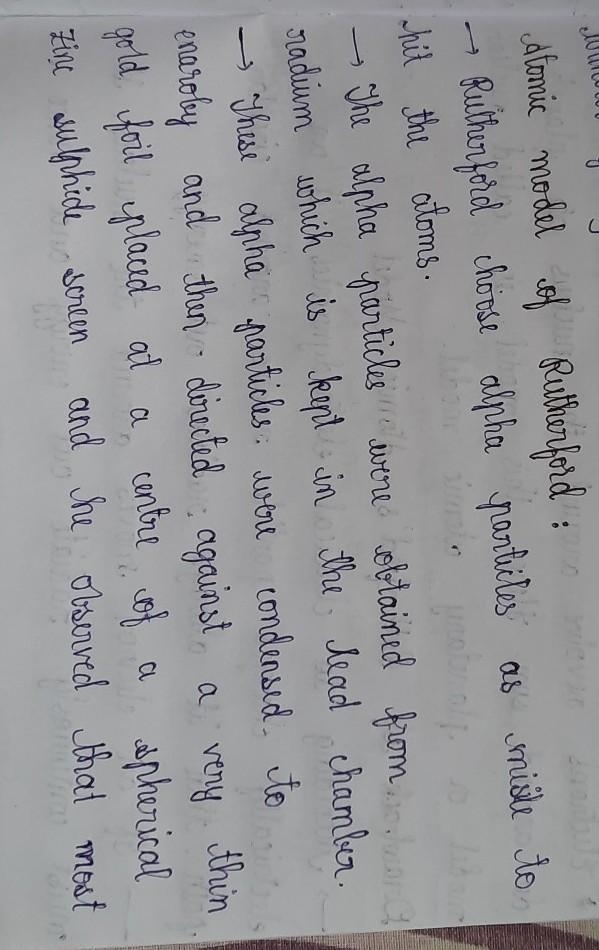 Atomic model of Rutherford :
→ Rutherford choose alpha particles as misile to
hit the atoms.
→ The alpha particles were obtained from
radium which is kept in the lead chamber.
→ These alpha particles were condensed to
enaroby and then directed against a very thin
gold foil placed at a centre of a spherical
zinc sulphide screen and he observed that most